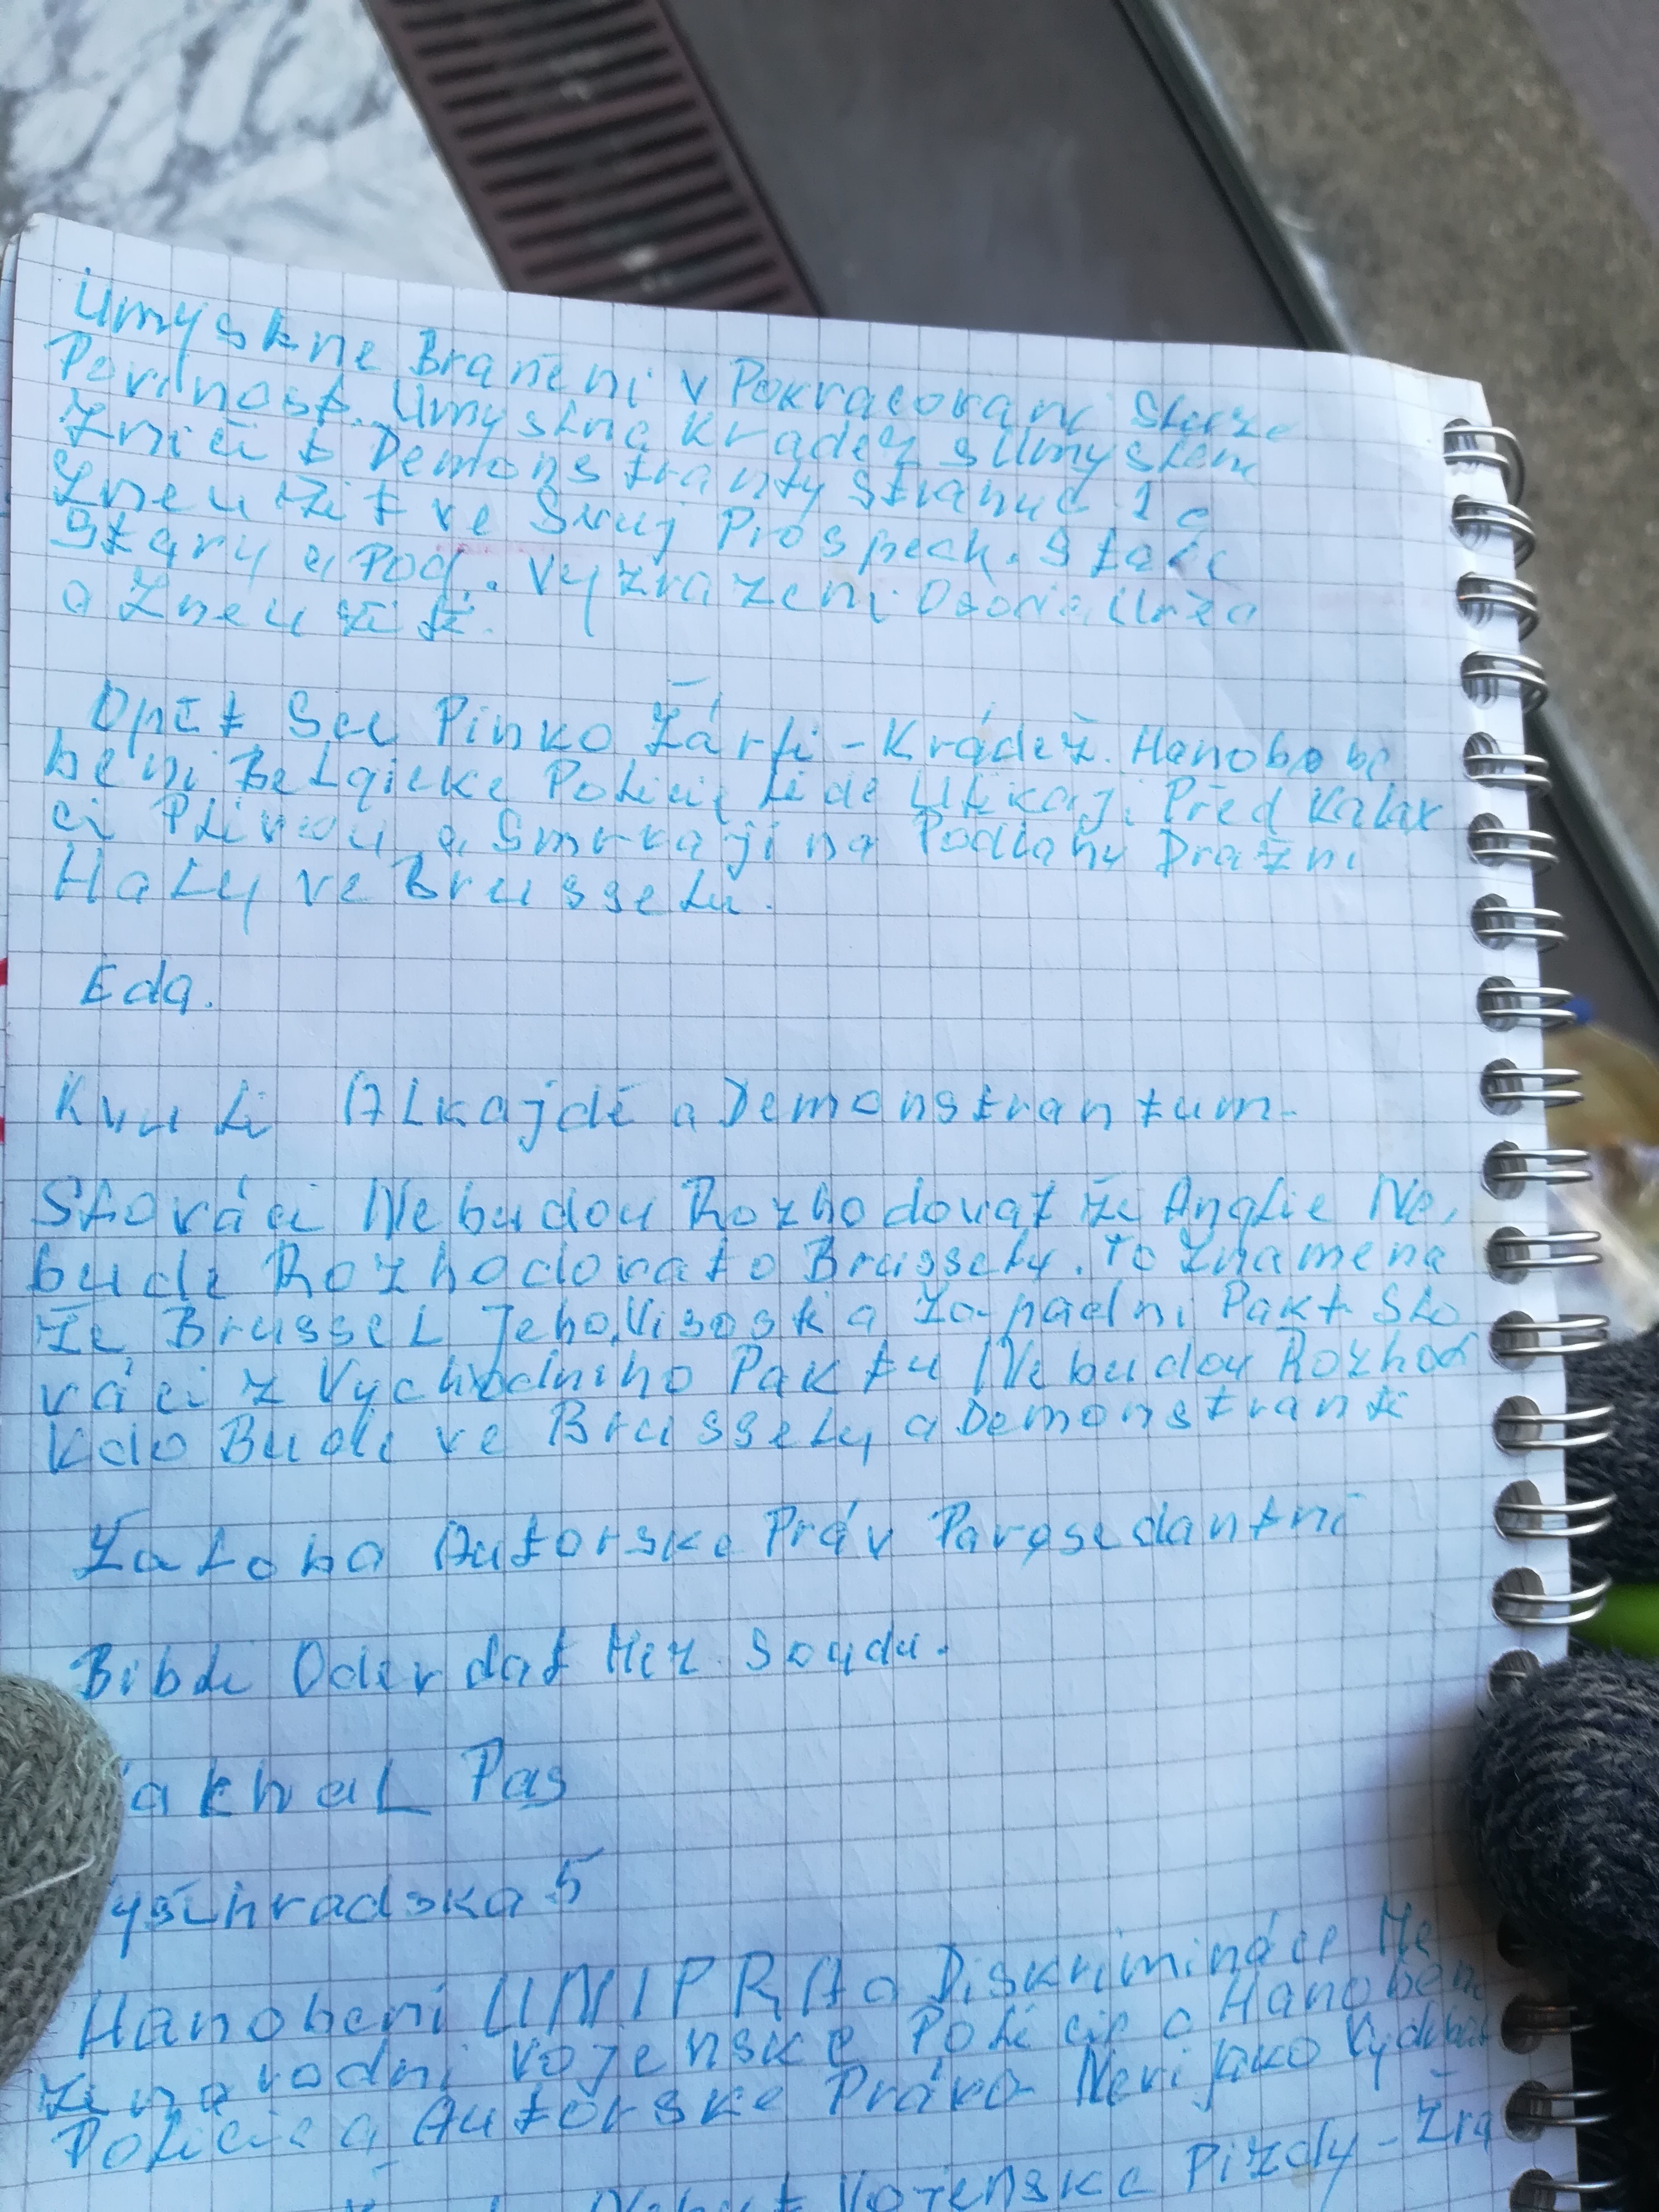 Umyslne Braneni v Pokracovani Sluze
Povinost. Umyslna Kradez s Umyslem
Zničit Demonstranty stranu č. 1 a
Zneužit ve Svuj Prospech. Stale
Stary a Pod. Vyzrazeni
a Zneužiti.
Opět Sel Pinko Žárli - Krádež. Hanobobe
beni Belgicke Policie Lide Utikaji Před
ci Plivou a Smrkaji na Podlahu Dražni
Haly ve Brusselu.
Eda.
Kvuli Alkajdě a Demonstrantum.
Slováci Nebudou Rozhodovat že Anglie Ne,
bude Rozhodovato Brussely. To Znamena
že Brussel Jeho Visoska Zapadni Pakt Slo
váci z Vychodniho Paktu Nebudou Rozhod
Kdo Bude ve Brussely a Demonstranti
Žaloba Autorske Práv
Bibli Oderdat Mez. Soudu.
akhal Pas
yšihradska 5
Hanobeni UNIPRA a Diskrimináce Me
zinarodni Vojenske Policie a Hanobeni
Policie a Autorske Práva Neni jako
Vojenske Pizdy - Žra